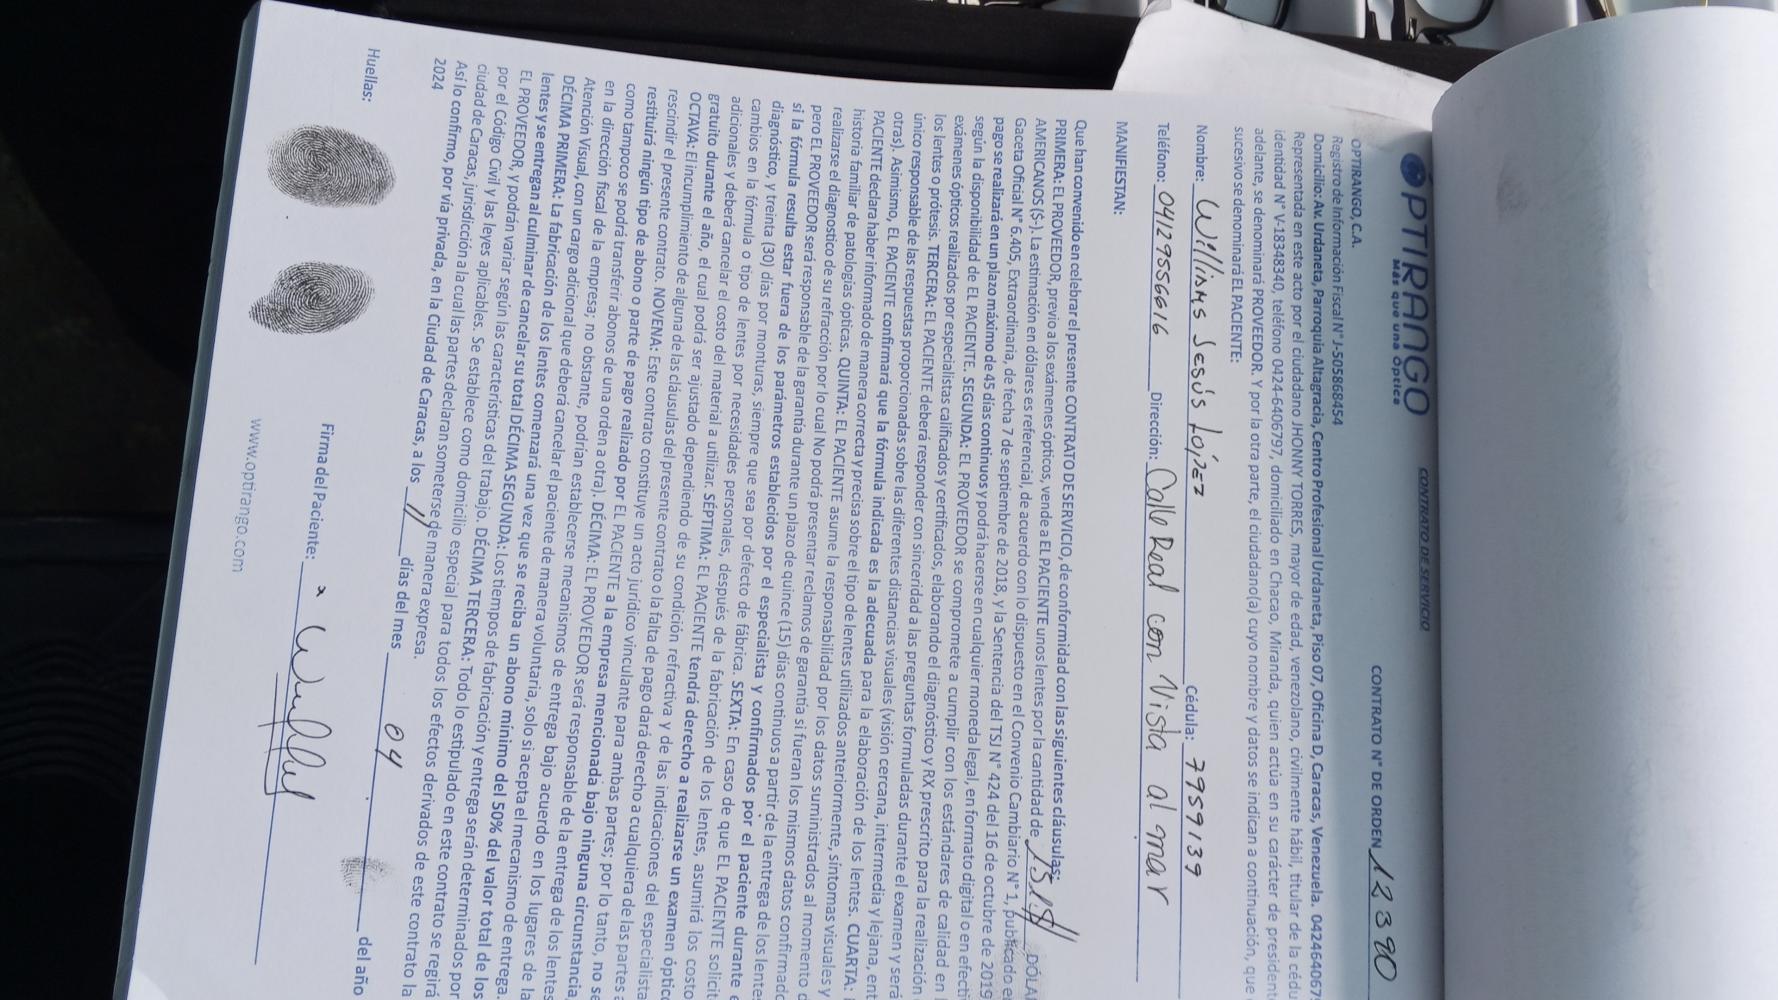 OPTIRANGO
Más que una óptica
CONTRATO DE SERVICIO
CONTRATO N° DE ORDEN 12390
OPTIRANGO, C.A.
Registro de Información Fiscal N° J-505868454
Domicilio: Av. Urdaneta, Parroquia Altagracia, Centro Profesional Urdaneta, Piso 07, Oficina D, Caracas, Venezuela. 0424640679
Representada en este acto por el ciudadano JHONNY TORRES, mayor de edad, venezolano, civilmente hábil, titular de la cédu
identidad N° V-18348340, teléfono 0424-6406797, domiciliado en Chacao, Miranda, quien actúa en su carácter de president
adelante, se denominará PROVEEDOR. Y por la otra parte, el ciudadano(a) cuyo nombre y datos se indican a continuación, que
sucesivo se denominará EL PACIENTE:
Nombre: Williams Jesús López Cédula: 7959139
Teléfono: 04129556616 Dirección: Calle Real con Vista al mar
MANIFIESTAN:
Que han convenido en celebrar el presente CONTRATO DE SERVICIO, de conformidad con las siguientes cláusulas:
PRIMERA: EL PROVEEDOR, previo a los exámenes ópticos, vende a EL PACIENTE unos lentes por la cantidad de DÓLAR
AMERICANOS ($-). La estimación en dólares es referencial, de acuerdo con lo dispuesto en el Convenio Cambiario N° 1, publicado e
Gaceta Oficial N° 6.405, Extraordinaria, de fecha 7 de septiembre de 2018, y la Sentencia del TSJ N° 424 del 16 de octubre de 2019
pago se realizará en un plazo máximo de 45 días continuos y podrá hacerse en cualquier moneda legal, en formato digital o en efecti
según la disponibilidad de EL PACIENTE. SEGUNDA: EL PROVEEDOR se compromete a cumplir con los estándares de calidad en l
exámenes ópticos realizados por especialistas calificados y certificados, elaborando el diagnóstico y RX prescrito para la realización
los lentes o prótesis. TERCERA: EL PACIENTE deberá responder con sinceridad a las preguntas formuladas durante el examen y será
único responsable de las respuestas proporcionadas sobre las diferentes distancias visuales (visión cercana, intermedia y lejana, ent
otras). Asimismo, EL PACIENTE confirmará que la fórmula indicada es la adecuada para la elaboración de los lentes. CUARTA:
PACIENTE declara haber informado de manera correcta y precisa sobre el tipo de lentes utilizados anteriormente, síntomas visuales y
historia familiar de patologías ópticas. QUINTA: EL PACIENTE asume la responsabilidad por los datos suministrados al momento d
realizarse el diagnostico de su refracción por lo cual No podrá presentar reclamos de garantía si fueran los mismos datos confirmado
pero EL PROVEEDOR será responsable de la garantía durante un plazo de quince (15) días continuos a partir de la entrega de los lente
si la fórmula resulta estar fuera de los parámetros establecidos por el especialista y confirmados por el paciente durante e
diagnóstico, y treinta (30) días por monturas, siempre que sea por defecto de fábrica. SEXTA: En caso de que EL PACIENTE solicit
cambios en la fórmula o tipo de lentes por necesidades personales, después de la fabricación de los lentes, asumirá los costo
adicionales y deberá cancelar el costo del material a utilizar. SÉPTIMA: EL PACIENTE tendrá derecho a realizarse un examen óptic
gratuito durante el año, el cual podrá ser ajustado dependiendo de su condición refractiva y de las indicaciones del especialista
OCTAVA: El incumplimiento de alguna de las cláusulas del presente contrato o la falta de pago dará derecho a cualquiera de las partes a
rescindir el presente contrato. NOVENA: Este contrato constituye un acto jurídico vinculante para ambas partes; por lo tanto, no se
restituirá ningún tipo de abono o parte de pago realizado por EL PACIENTE a la empresa mencionada bajo ninguna circunstancia,
como tampoco se podrá transferir abonos de una orden a otra). DÉCIMA: EL PROVEEDOR será responsable de la entrega de los lentes
en la dirección fiscal de la empresa; no obstante, podrían establecerse mecanismos de entrega bajo acuerdo en los lugares de la
Atención Visual, con un cargo adicional que deberá cancelar el paciente de manera voluntaria, solo si acepta el mecanismo de entrega.
DÉCIMA PRIMERA: La fabricación de los lentes comenzará una vez que se reciba un abono mínimo del 50% del valor total de los
lentes y se entregan al culminar de cancelar su total DÉCIMA SEGUNDA: Los tiempos de fabricación y entrega serán determinados por
EL PROVEEDOR, y podrán variar según las características del trabajo. DÉCIMA TERCERA: Todo lo estipulado en este contrato se regirá
por el Código Civil y las leyes aplicables. Se establece como domicilio especial para todos los efectos derivados de este contrato la
ciudad de Caracas, jurisdicción a la cual las partes declaran someterse de manera expresa.
Así lo confirmo, por vía privada, en la Ciudad de Caracas, a los 11 días del mes 04 del año
2024
Huellas:
Firma del Paciente: x
www.optirango.com